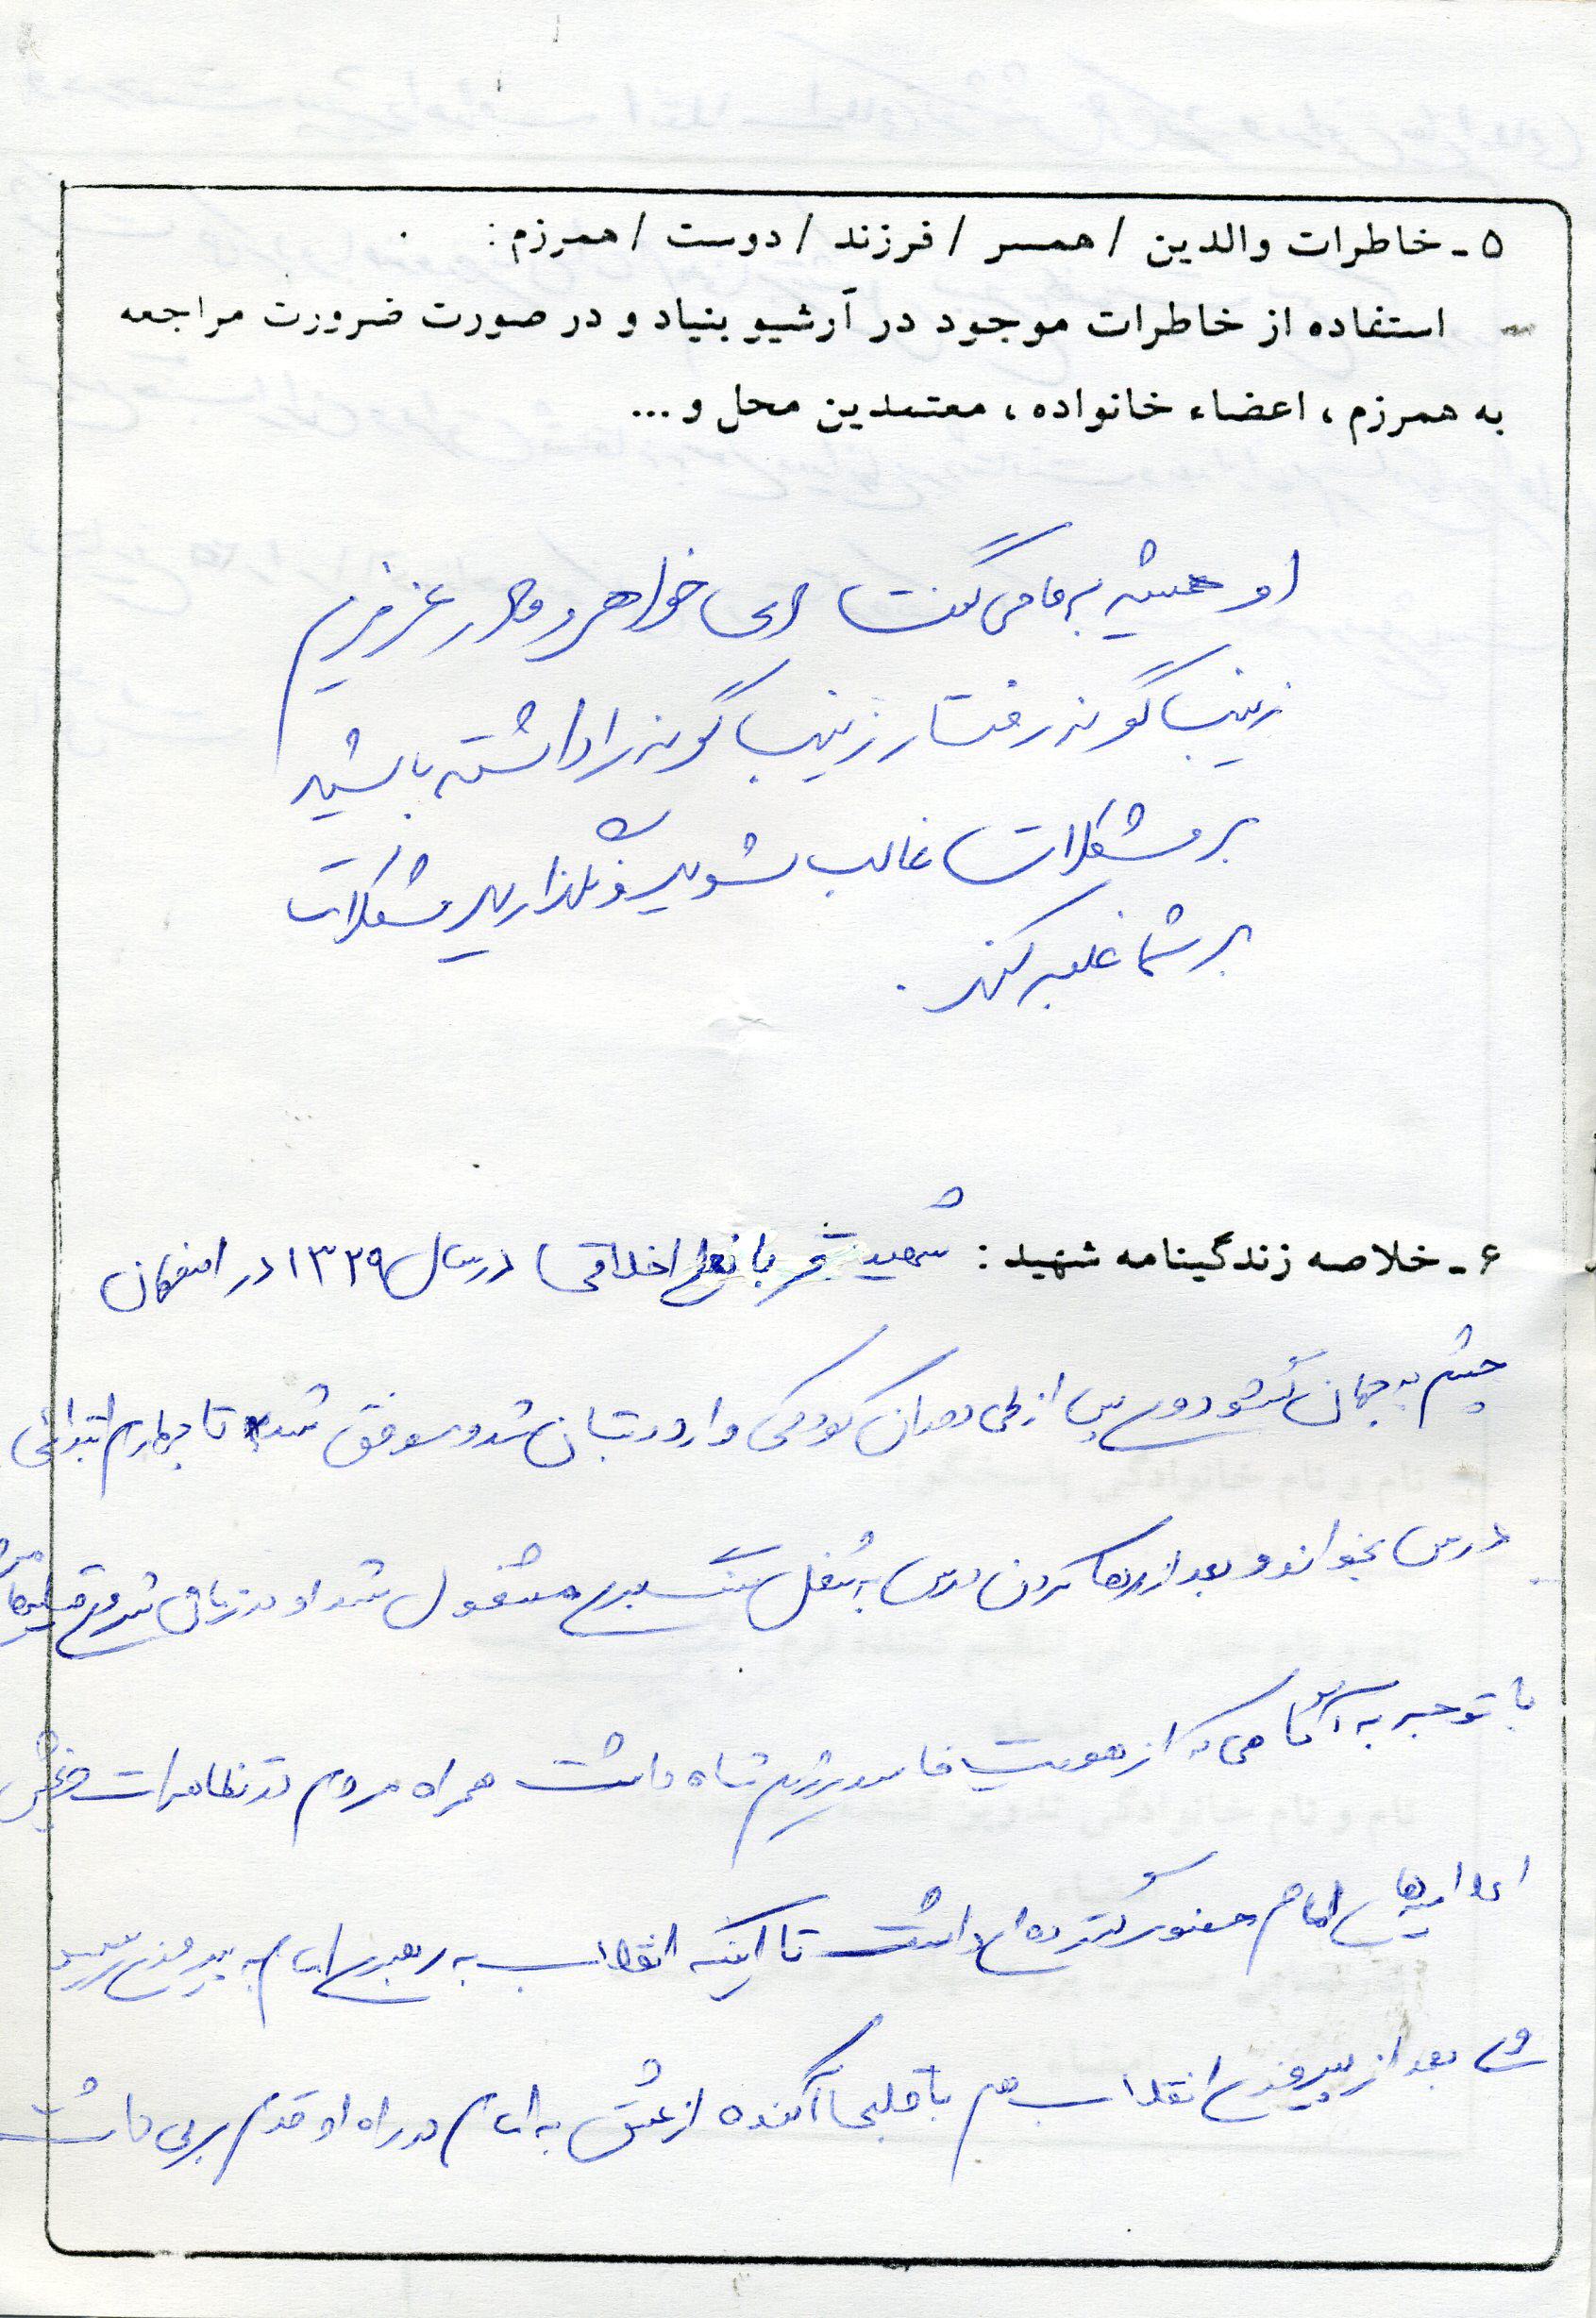 ۵ ـ خاطرات والدین / همسر / فرزند / دوست / همرزم :
ـ استفاده از خاطرات موجود در آرشیو بنیاد و در صورت ضرورت مراجعه
به همرزم ، اعضاء خانواده ، معتمدین محل و ...
او همیشه به ما می گفت ای خواهر و مادر عزیزم
زینب گونه رفتار زینب گونه را داشته باشید
بر مشکلات غالب شوید و نگذارید که مشکلات
بر شما غلبه کند .
۶ ـ خلاصه زندگینامه شهید : شهید اخلاقی در سال ۱۳۲۹ در اصفهان
چشم به جهان گشود وی پس از طی دوران کودکی وارد دبستان شد و موفق شد تا چهارم ابتدائی
درس بخواند و بعد از رها کردن درس به شغل سنگ بری مشغول شد او در زمان شروع
با توجه به آگاهی که از هویت فاسد رژیم شاه داشت همراه مردم در تظاهرات و پخش
اعلامیه های امام حضور گسترده ای داشت تا اینکه انقلاب به رهبری امام به پیروزی رسید
وی بعد از پیروزی انقلاب هم با قلبی آکنده از عشق به امام در راه او قدم برمی داشت